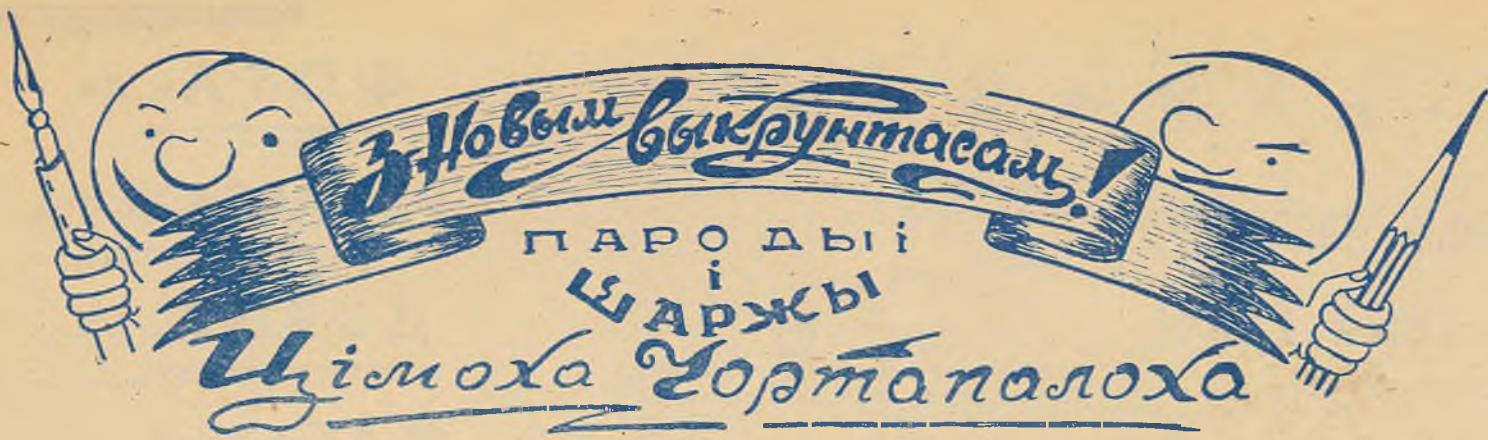 З Новым выкрунтасам!
ПАРОДЫІ
і
ШАРЖЫ
Цімоха Чортапалоха